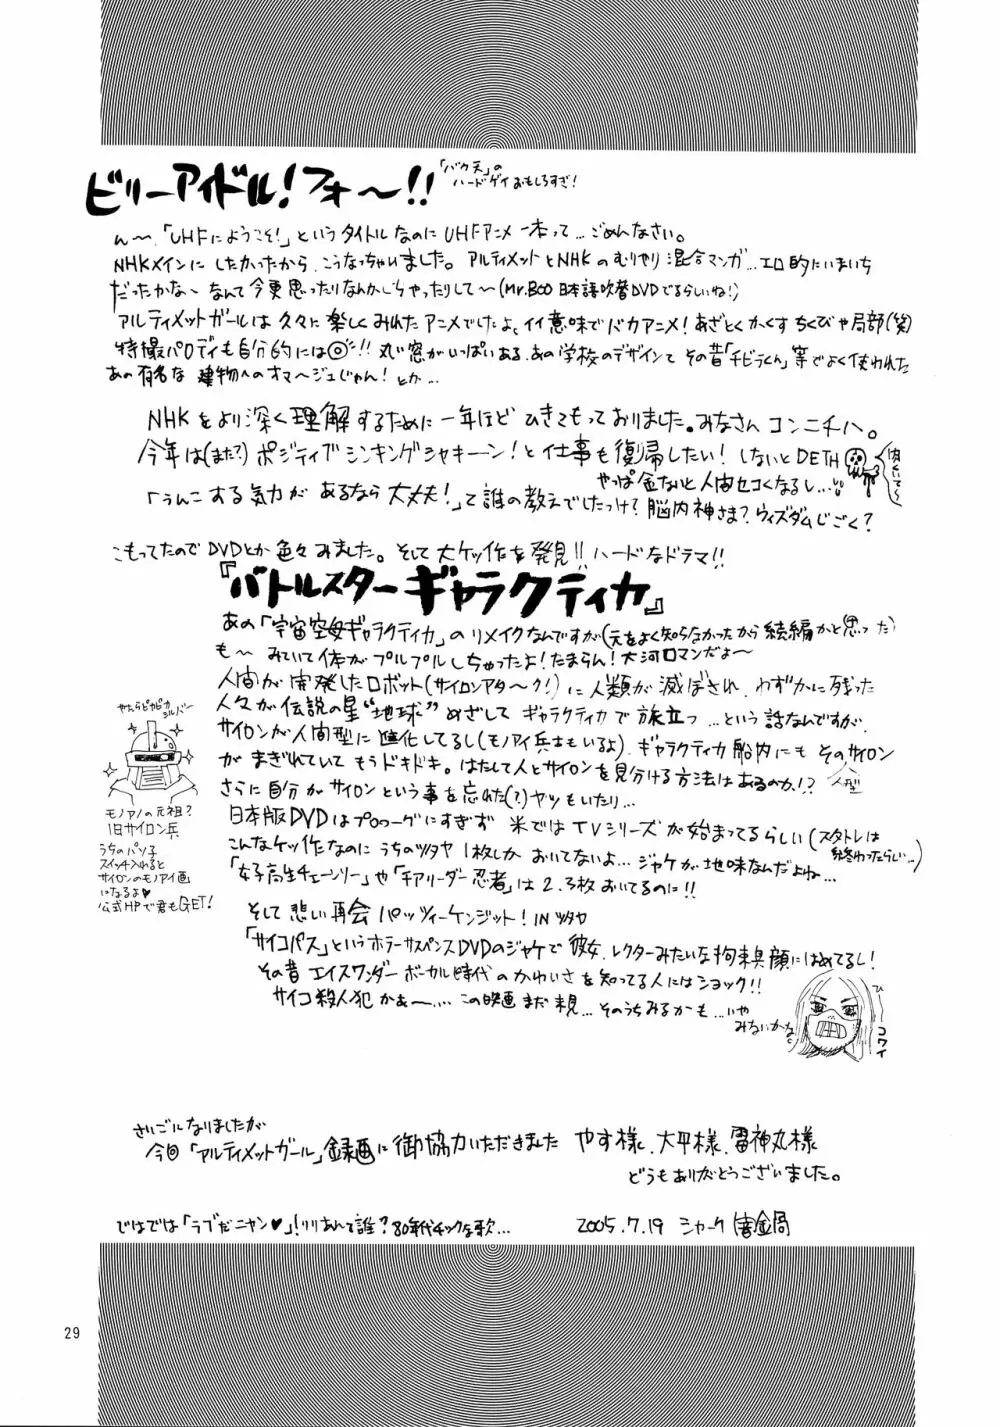 ビリーアイドル！フォ〜!!
「バク天」の
ハードゲイおもしろすぎ！
ん〜、「UHFにようこそ！」というタイトルなのにUHFアニメ一本って…ごめんなさい。
NHKメインにしたかったから、こうなっちゃいました。アルティメットとNHKのむりやり混合マンガ…エロ的にいまいち
だったかな〜なんて今更思ったりなんかしちゃったりして〜(Mr.BOO日本語吹替DVDでるらしいね！)
アルティメットガールは久々に楽しくみれたアニメでしたよ、イイ意味でバカアニメ！あざとくかくすちくびや局部(笑)
特撮パロディも自分的には◎!!丸い窓がいっぱいある、あの学校のデザインて その昔「チビラくん」等でよく使われた
あの有名な 建物へのオマージュじゃん！とか…
NHKをより深く理解するために一年ほどひきこもっておりました。みなさんコンニチハ。
今年は(また?)ポジティブシンキングシャキーン！と仕事も復帰したい！しないとDETH
肉くいて〜
やっぱ金ないと人間セコくなるし…
「うんこする気力があるなら大丈夫！」って誰の教えでしたっけ？脳内神さま？ウィズダムじごく？
こもってたのでDVDとか色々みました。そして大ケッ作を発見!!ハードなドラマ!!
『バトルスターギャラクティカ』
あの「宇宙空母ギャラクティカ」のリメイクなんですが(元をよく知らなかったから続編かと思った)
も〜みていて体がプルプルしちゃったよ！たまらん！大河ロマンだよ〜
人間が開発したロボット(サイロンアタ〜ク！)に人類が滅ぼされ、わずかに残った
人々が伝説の星“地球”めざしてギャラクティカで旅立つ…という話なんですが、
サイロンが人間型に進化してるし(モノアイ兵士もいるよ)、ギャラクティカ船内にもそのサイロン
がまぎれていてもうドキドキ。はたして人とサイロンを見分ける方法はあるのか!?
人型
さらに自分がサイロンという事を忘れた(?)ヤツもいたり…
日本版DVDはプロローグにすぎず 米ではTVシリーズが始まってるらしい(スタトレは
終わったらしい…)
こんなケッ作なのにうちのツタヤ1枚しかおいてないよ…ジャケが地味なんだよね…
「女子高生チェーンソー」や「チアリーダー忍者」は2、3枚おいてるのに!!
やたらピカピカ
シルバー
モノアイの元祖？
旧サイロン兵
うちのパソ子
スイッチ入れると
サイロンのモノアイ画
になるよ♥
公式HPで君もGET！
そして悲しい再会 パッツィーケンジット！INツタヤ
「サイコパス」というホラーサスペンスDVDのジャケで彼女、レクターみたいな拘束具顔にはめてるし！
その昔エイスワンダーボーカル時代のかわいさを知ってる人にはショック!!
サイコ殺人犯かぁ〜…この映画まだ未見…そのうちみるかも…いや
みないかな。
ひー
コワイ
さいごになりましたが
今回「アルティメットガール」録画に御協力いただきました やす様、大平様、雷神丸様
どうもありがとうございました。
ではでは「ラブだニャン♥」！りりあんて誰？80年代チックな歌…
2005.7.19 シャーク
29